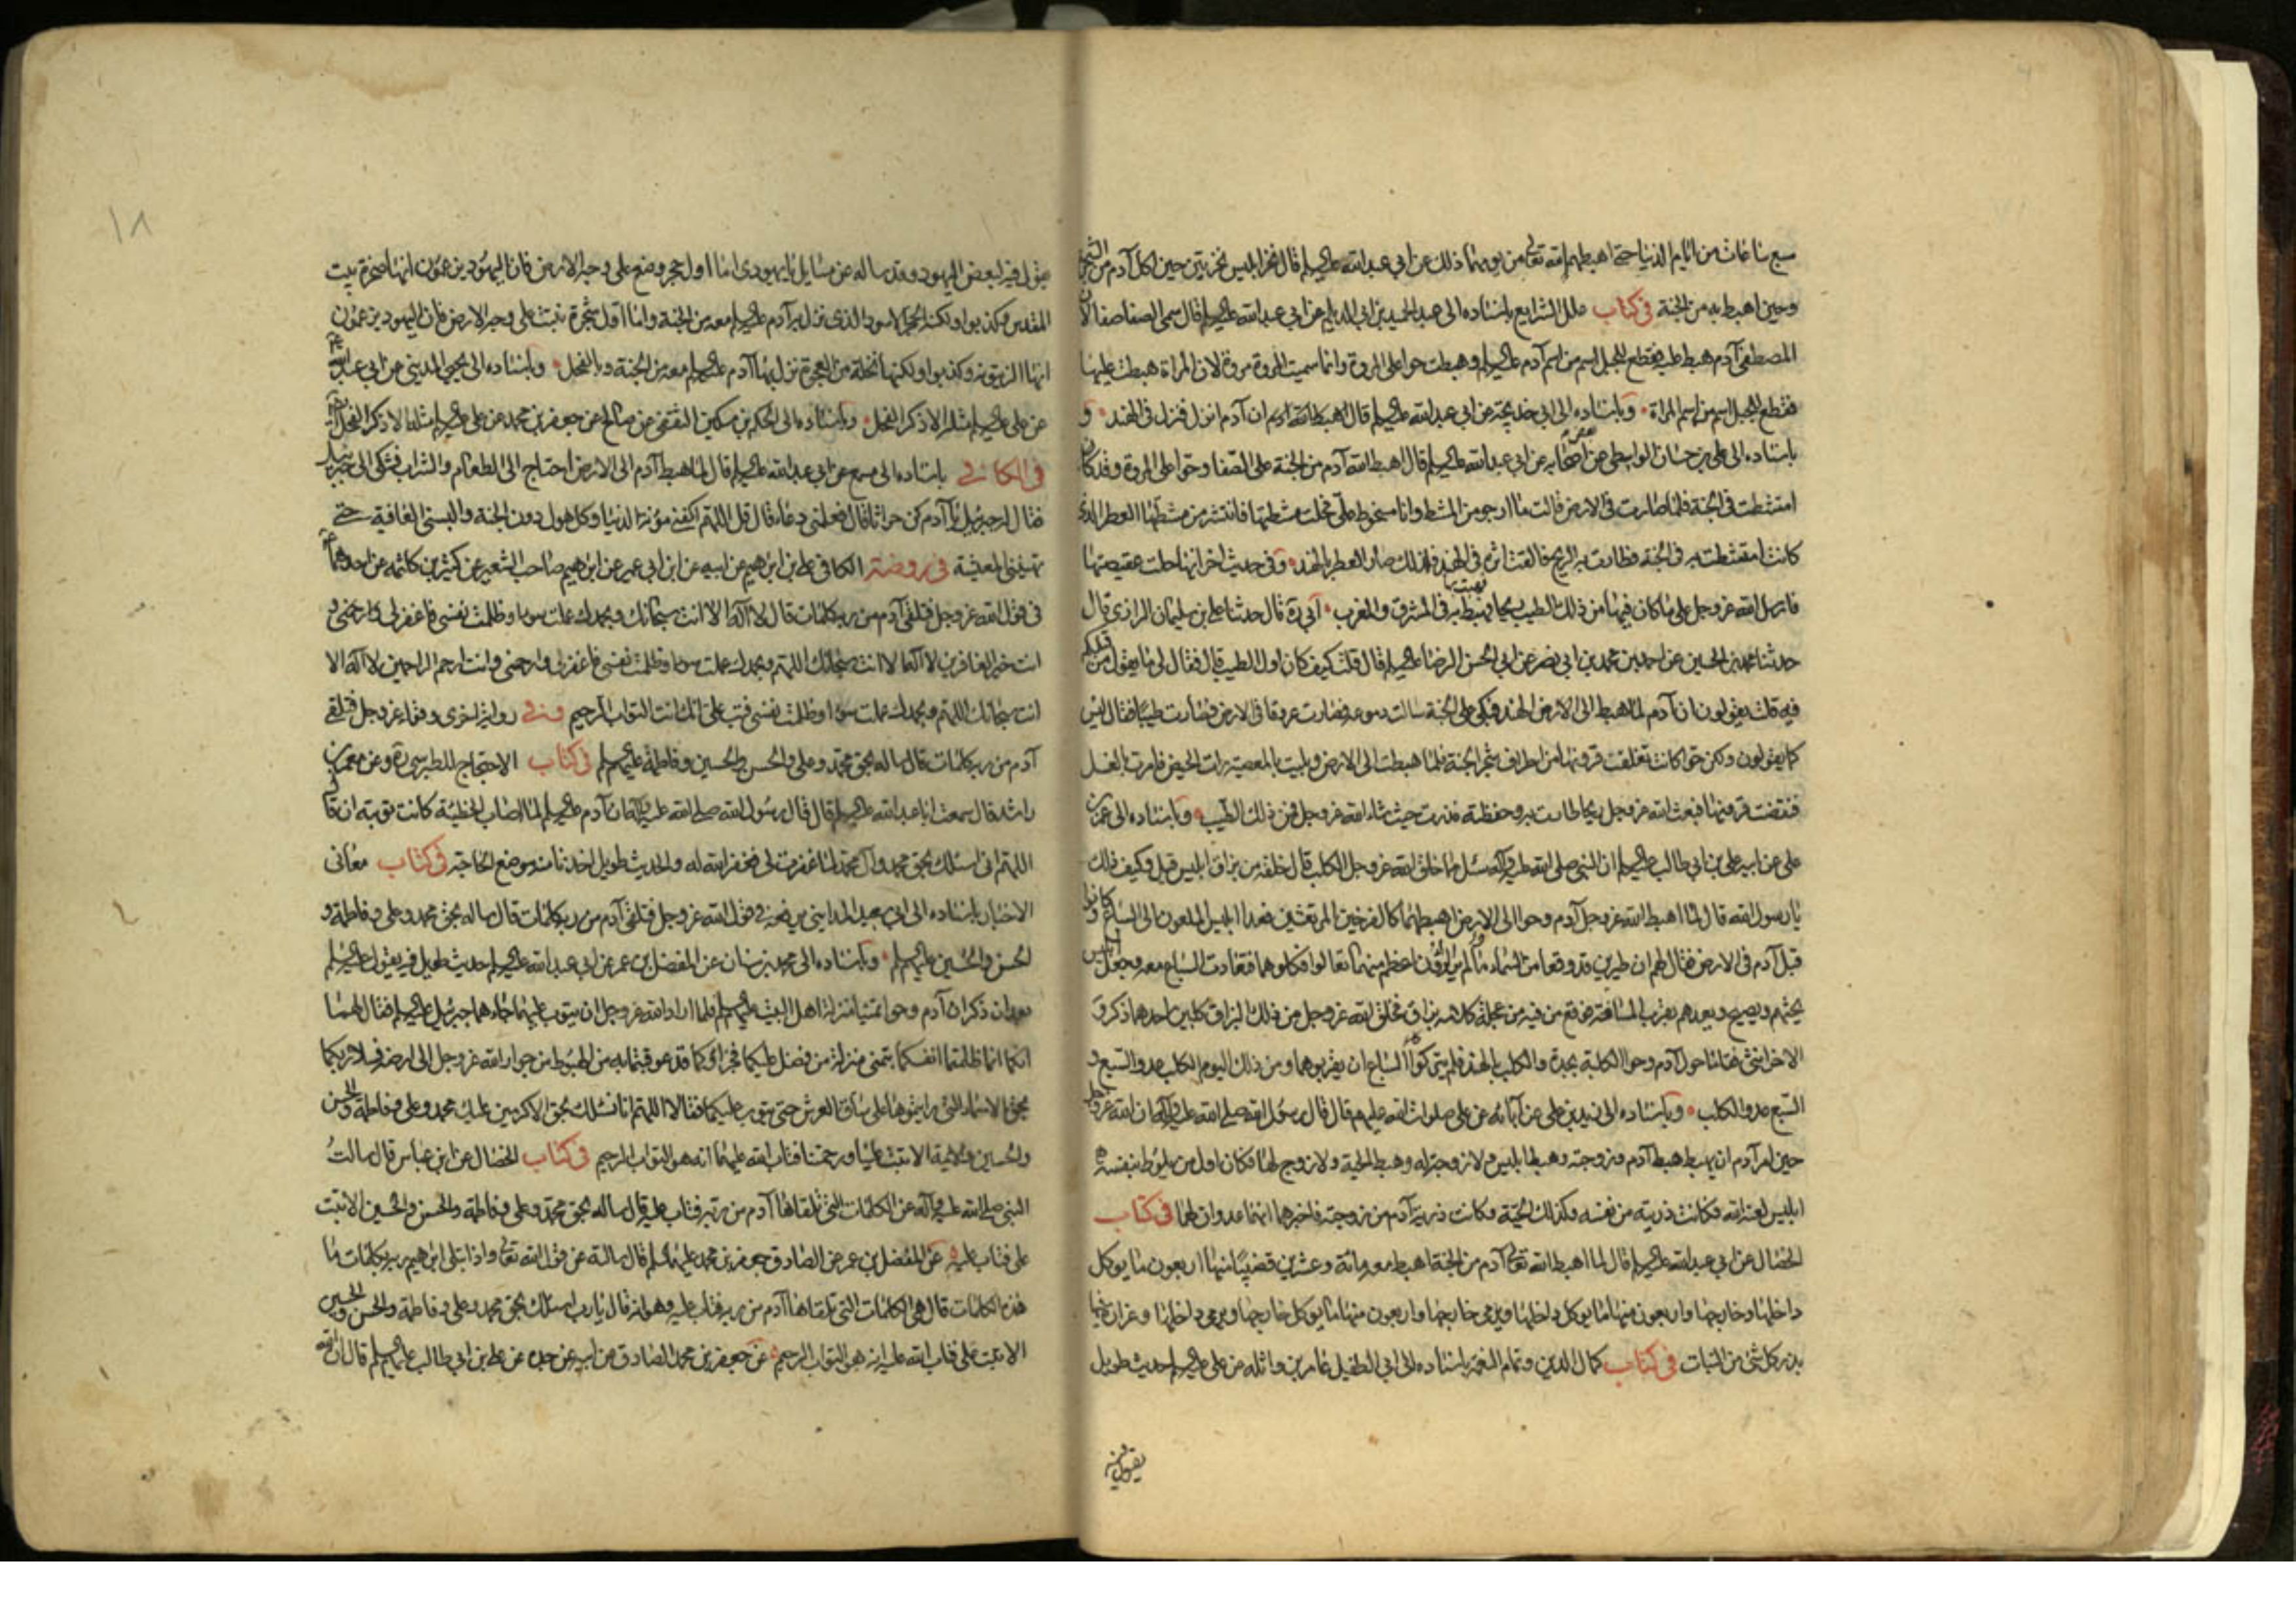 سبع ساعات من ايام الدنيا حتى اهبطهم الله تعالى من يومهما ذلك عن ابي عبد الله عليه السلام قال نخر ابليس نخرتين حين اكل آدم من الشجرة
وحين اهبط به من الجنة في كتاب علل الشرايع باسناده الى عبد الحميد بن ابي الديلم عن ابي عبد الله عليه السلام قال سمى الصفا صفا لان
المصطفى آدم هبط عليه فقطع للجبل اسم من اسم آدم عليه السلام وهبطت حوا على المروة وانما سميت المروة مروة لان المراة هبطت عليها
فقطع للجبل اسم من اسم المراة وباسناده الى ابي خديجة عن ابي عبد الله عليه السلام قال اهبط الله آدم ان آدم انزل فنزل في الهند و
باسناده الى علي بن حسان الواسطي عن بعض اصحابه عن ابي عبد الله عليه السلام قال اهبط الله آدم من الجنة على الصفا وحوا على المروة وقد كان
امتشطت في الجنة فلما صارت في الارض قالت ما ارجو من المشط وانا مسخوط علي فحلت مشطها فانتشر من مشطها العطر الذي
كانت امتشطت به في الجنة فطارت به الريح فالقت اثره في الهند فلذلك صار العطر بالهند وفي حديث اخر انها حلت عقيصتها
فارسل الله عز وجل على ما كان فيها من ذلك الطيب ريحا فهبت به في المشرق والمغرب ابي ره قال حدثنا علي بن سليمان الرازي قال
حدثنا محمد بن الحسين عن احمد بن محمد بن ابي نصر عن ابي الحسن الرضا عليه السلام قال قلت كيف كان اول الطيب قال فقال لي ما يقول من قبلكم
فيه قلت يقولون ان آدم لما هبط الى الارض الهند فبكى على الجنة سالت دموعه فصارت عروقا في الارض فصارت طيبا فقال ليس
كما يقولون ولكن حوا كانت تغلفت قرونها من اطراف شجر الجنة فلما هبطت الى الارض وبليت بالمعصية رات الحيض فامرت بالغسل
فنقضت قرونها فبعث الله عز وجل ريحا طارت به وخفظته فذرت حيث شاء الله عز وجل فمن ذلك الطيب وباسناده الى عمر بن
علي عن ابيه علي بن ابي طالب عليه السلام ان النبي صلى الله عليه وآله سئل مما خلق الله عز وجل الكلب قال خلقه من بزاق ابليس قيل وكيف ذلك
يا رسول الله قال لما اهبط الله عز وجل آدم وحوا الى الارض اهبطهما كالفرخين المرتعشين فعدا ابليس الملعون الى السباع وكانوا
قبل آدم في الارض فقال لهم ان طيرين قد وقعا من السماء لم ير الراؤن اعظم منهما تعالوا فكلوهما فتعادت السباع معه وجعل ابليس
يحثهم ويصيح ويعدهم بقرب المسافة فوقع من فيه من عجلة كلامه بزاق فخلق الله عز وجل من ذلك البزاق كلبين احدهما ذكر و
الاخر انثى فقاما حول آدم وحوا الكلبة بجدة والكلب بالهند فلم يتركوا السباع ان يقربوهما ومن ذلك اليوم الكلب عدو السبع و
السبع عدو الكلب وباسناده الى زيد بن علي عن آبائه عن علي صلوات الله عليهم قال قال رسول الله صلى الله عليه وآله ان الله عز وجل
حين امر آدم ان يهبط هبط آدم وزوجته وهبط ابليس ولا زوجة له وهبط الحية ولا زوج لها فكان اول من يلوط بنفسه
ابليس لعنه الله فكانت ذريته من نفسه وكذلك الحية وكانت ذرية آدم من زوجته فاخبرهما انهما عدوان لهما في كتاب
الخصال عن ابي عبد الله عليه السلام قال لما اهبط الله تعالى آدم من الجنة اهبط معه مائة وعشرين قضيبا منها اربعون ما يوكل
داخلها وخارجها واربعون منها ما يوكل داخلها ويرمى خارجها واربعون منها ما يوكل خارجها ويرمى داخلها وغرارة فيها
بذر كل شئ من النبات في كتاب كمال الدين وتمام النعمة باسناده الى ابي الطفيل عامر بن واثله عن علي عليه السلام حديث طويل
يقول فيه
يقول فيه لبعض اليهود وقد ساله عن مسايل يا يهودي اما اول حجر وضع على وجه الارض فان اليهود يزعمون انها صخرة بيت
المقدس وكذبوا ولكنه الحجر الاسود الذي نزل به آدم عليه السلام معه من الجنة واما اول شجرة نبتت على وجه الارض فان اليهود يزعمون
انها الزيتونة وكذبوا ولكنها نخلة من العجوة نزل بها آدم عليه السلام معه من الجنة وبالفحل وباسناده الى يحيى المديني عن ابي عبد الله
عن علي عليه السلام مثله الا ذكر الفحل وباسناده الى الحكم بن مسكين الثقفي عن صالح عن جعفر بن محمد عن علي عليه السلام مثله الا ذكر الفحل
في الكافي باسناده الى مسمع عن ابي عبد الله عليه السلام قال لما هبط آدم الى الارض احتاج الى الطعام والشراب فشكى الى جبرئيل
فقال له جبرئيل يا آدم كن حراثا قال فعلمني دعاء قال قل اللهم اكفني مؤنة الدنيا وكل هول دون الجنة والبسني العافية حتى
تهنئني المعيشة في روضة الكافي علي بن ابرهيم عن ابيه عن ابن ابي عمير عن ابرهيم صاحب الشعير عن كثير بن كلثمه عن احدهما
في قول الله عز وجل فتلقى آدم من ربه كلمات قال لا اله الا انت سبحانك وبحمدك عملت سوءا وظلمت نفسي فاغفر لي وارحمني و
انت خير الغافرين لا اله الا انت سبحانك اللهم وبحمدك عملت سوءا وظلمت نفسي فاغفر لي وارحمني وانت ارحم الراحمين لا اله الا
انت سبحانك اللهم وبحمدك عملت سوءا وظلمت نفسي فتب علي انك انت التواب الرحيم وفي رواية اخرى وقوله عز وجل فتلقى
آدم من ربه كلمات قال ساله بحق محمد وعلي والحسن والحسين وفاطمة عليهم السلام في كتاب الاحتجاج للطبرسي ره وعن معمر بن
راشد قال سمعت ابا عبد الله عليه السلام قال قال رسول الله صلى الله عليه وآله ان آدم عليه السلام لما اصاب الخطيئة كانت توبته ان قال
اللهم اني اسئلك بحق محمد وآل محمد لما غفرت لي فغفر الله له والحديث طويل اخذنا منه موضع الحاجة في كتاب معاني
الاخبار باسناده الى ابي سعيد المدايني يرفعه في قول الله عز وجل فتلقى آدم من ربه كلمات قال ساله بحق محمد وعلي وفاطمة و
الحسن والحسين عليهم السلام وباسناده الى محمد بن سنان عن المفضل بن عمر عن ابي عبد الله عليه السلام حديث طويل فيه يقول عليه السلام
بعد ان ذكر ان آدم وحوا تمنيا منزلة اهل البيت عليهم السلام فلما اراد الله عز وجل ان يتوب عليهما جاءهما جبرئيل عليه السلام فقال لهما
انكما انما ظلمتما انفسكما بتمني منزلة من فضل عليكما فجزاؤكما قد عوقبتما به من الهبوط من جوار الله عز وجل الى ارضه فسلا ربكما
بحق الاسماء التي رايتموها على ساق العرش حتى يتوب عليكما فقالا اللهم انا نسئلك بحق الاكرمين عليك محمد وعلي وفاطمة والحسن
والحسين والائمة الا تبت علينا ورحمتنا فتاب الله عليهما انه هو التواب الرحيم في كتاب الخصال عن ابن عباس قال سالت
النبي صلى الله عليه وآله عن الكلمات التي تلقاها آدم من ربه فتاب عليه قال ساله بحق محمد وعلي وفاطمة والحسن والحسين الا تبت
علي فتاب عليه عن المفضل بن عمر عن الصادق جعفر بن محمد عليهما السلام قال سالته عن قول الله تعالى واذ ابتلى ابرهيم ربه بكلمات ما
هذه الكلمات قال هي الكلمات التي تلقاها آدم من ربه فتاب عليه وهو انه قال يا رب اسئلك بحق محمد وعلي وفاطمة والحسن والحسين
الا تبت علي فتاب الله عليه انه هو التواب الرحيم عن جعفر بن محمد الصادق عن ابيه عن جده عن علي بن ابي طالب عليهم السلام قال ان الله
١٨